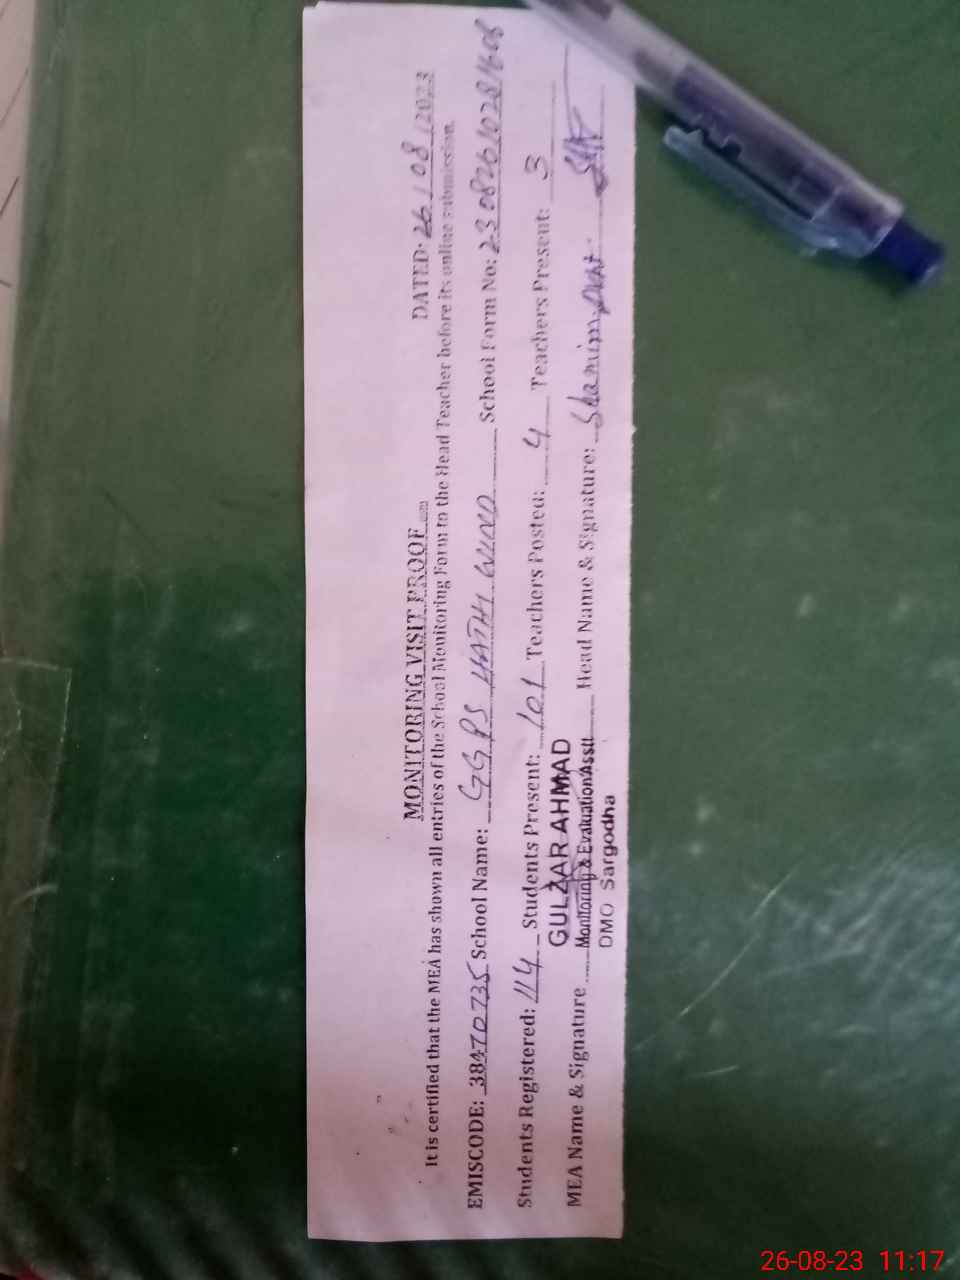 MONITORING VISIT PROOF
DATED: 26/08/2023
It is certified that the MEA has shown all entries of the School Monitoring Form to the Head Teacher before its online submission.
EMISCODE: 38470735 School Name: GGPS HATHI WIND School Form No: 230826102816
Students Registered: 114 Students Present: 101 Teachers Posted: 4 Teachers Present: 3
GULZAR AHMAD
MEA Name & Signature Monitoring & Evaluation Asstt Head Name & Signature: Shamim
DMO Sargodha
26-08-23 11:17